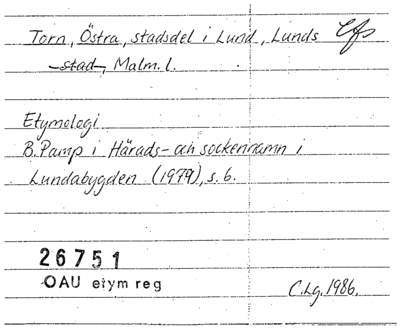 Torn, Östra, stadsdel i Lund, Lunds
stad, Malm. l.
Etymologi
B. Pamp i Härads- och sockennamn i
Lundabygden (1979), s. 6.
26751
OAU etym reg
C.Lg. 1986.